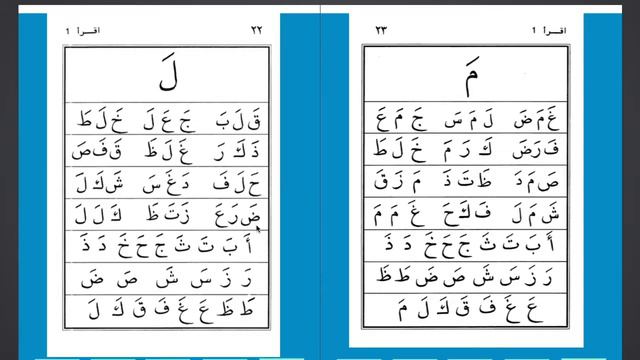 ٢٢ اقـرأ ١
لَ
قَ لَ بَ جَ عَ لَ خَ لَ طَ
ذَ كَ رَ غَ لَ ظَ قَ فَ صَ
حَ لَ فَ دَ غَ سَ شَ كَ لَ
ضَ رَ عَ زَ تَ ظَ كَ لَ لَ
أَ بَ تَ ثَ جَ حَ خَ دَ ذَ
رَ زَ سَ شَ صَ ضَ
طَ ظَ عَ غَ فَ قَ كَ لَ
اقـرأ ١ ٢٣
مَ
غَ مَ ضَ لَ مَ سَ جَ مَ عَ
فَ رَ ضَ كَ رَ مَ خَ لَ طَ
صَ مَ دَ ظَ تَ ذَ مَ زَ قَ
شَ مَ لَ فَ كَ حَ غَ مَ مَ
أَ بَ تَ ثَ جَ حَ خَ دَ ذَ
رَ زَ سَ شَ صَ ضَ طَ ظَ
عَ غَ فَ قَ كَ لَ مَ